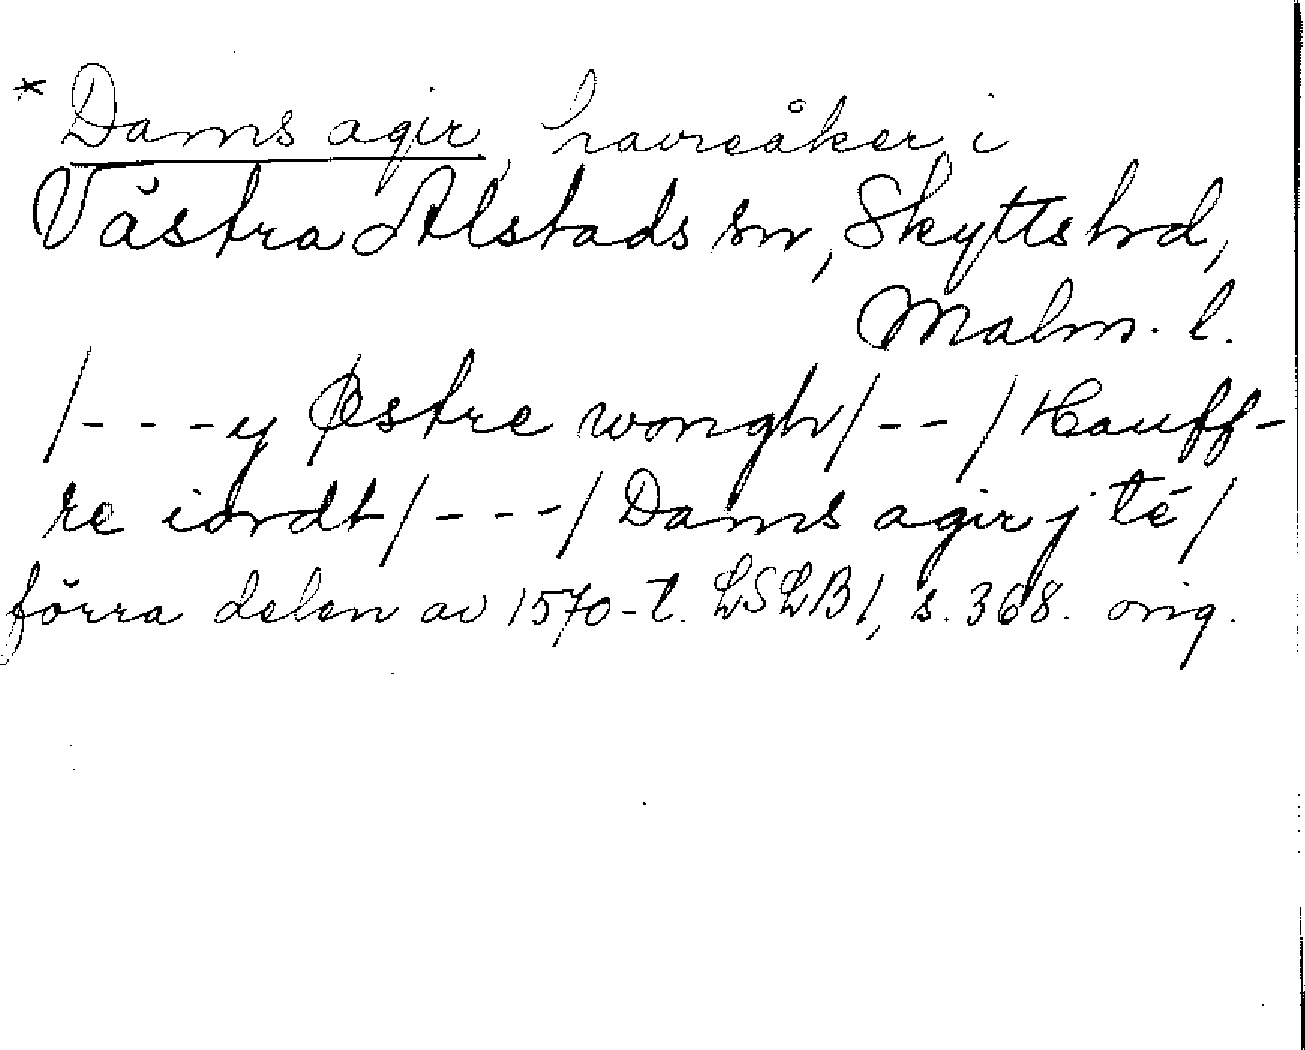 * Dams agir, havreåker i
Västra Alstads sn, Skytts hrd,
Malm. l.
/- - - y Østre wongh/ - - / Hauff-
re iordt/ - - - / Dams agir j té /
förra delen av 1570-t. LSLB 1, s. 368. orig.